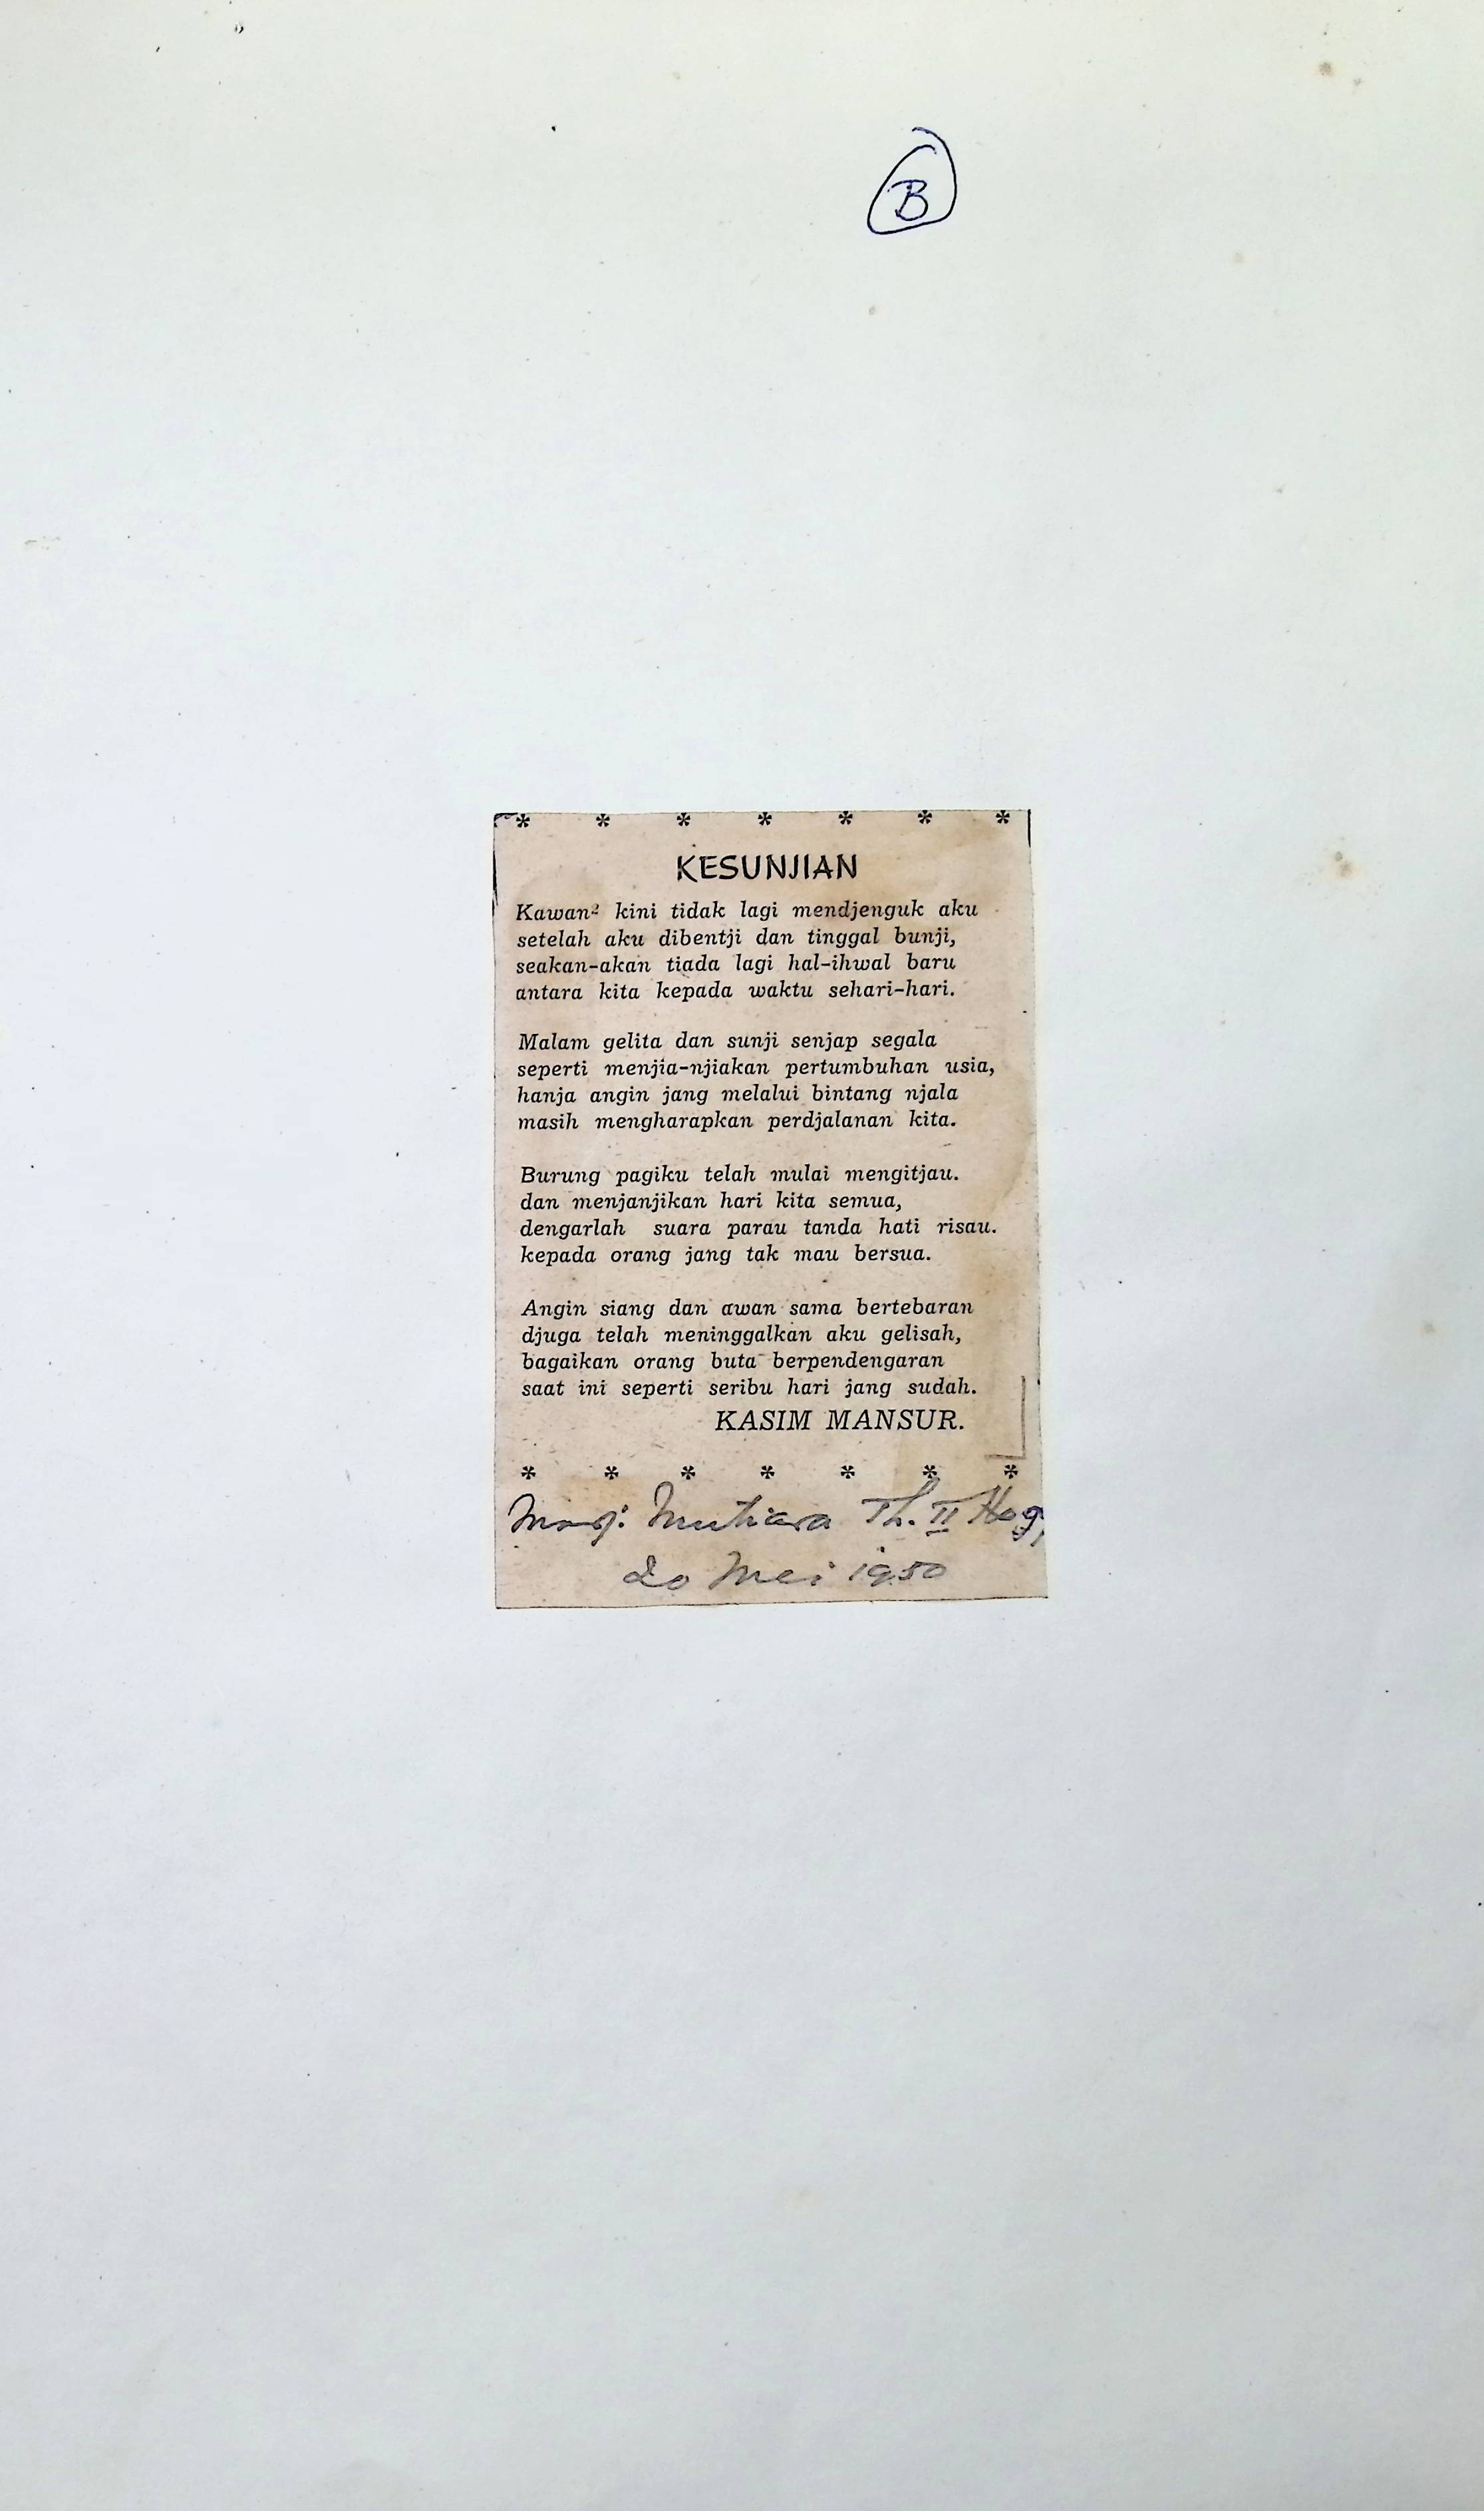 B
* * * * * * *
KESUNJIAN
Kawan² kini tidak lagi mendjenguk aku
setelah aku dibentji dan tinggal bunji,
seakan-akan tiada lagi hal-ihwal baru
antara kita kepada waktu sehari-hari.
Malam gelita dan sunji senjap segala
seperti menjia-njiakan pertumbuhan usia,
hanja angin jang melalui bintang njala
masih mengharapkan perdjalanan kita.
Burung pagiku telah mulai mengitjau.
dan menjanjikan hari kita semua,
dengarlah suara parau tanda hati risau.
kepada orang jang tak mau bersua.
Angin siang dan awan sama bertebaran
djuga telah meninggalkan aku gelisah,
bagaikan orang buta berpendengaran
saat ini seperti seribu hari jang sudah.
KASIM MANSUR.
* * * * * * *
Mutiara Th. II
20 Mei 1950